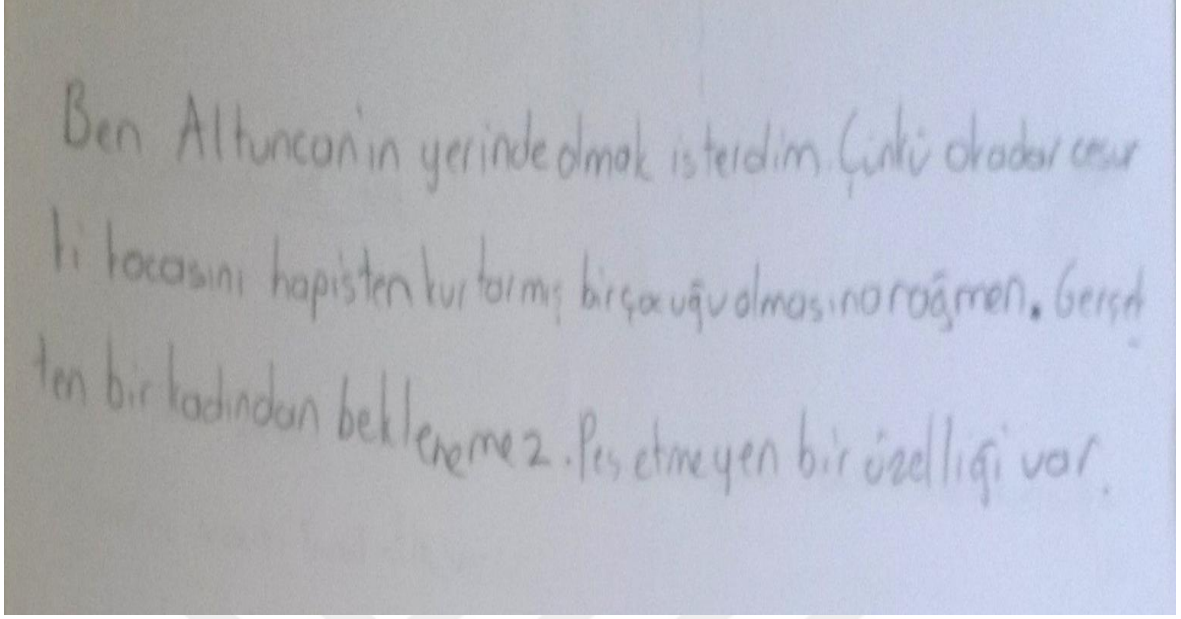 Ben Altuncan'in yerinde olmak isterdim. Çünkü okadar cesur
ki kocasını hapisten kurtarmış bir çocuğu olmasına rağmen. Gerçek
ten bir kadından beklenemez. Pes etmeyen bir özelliği var.